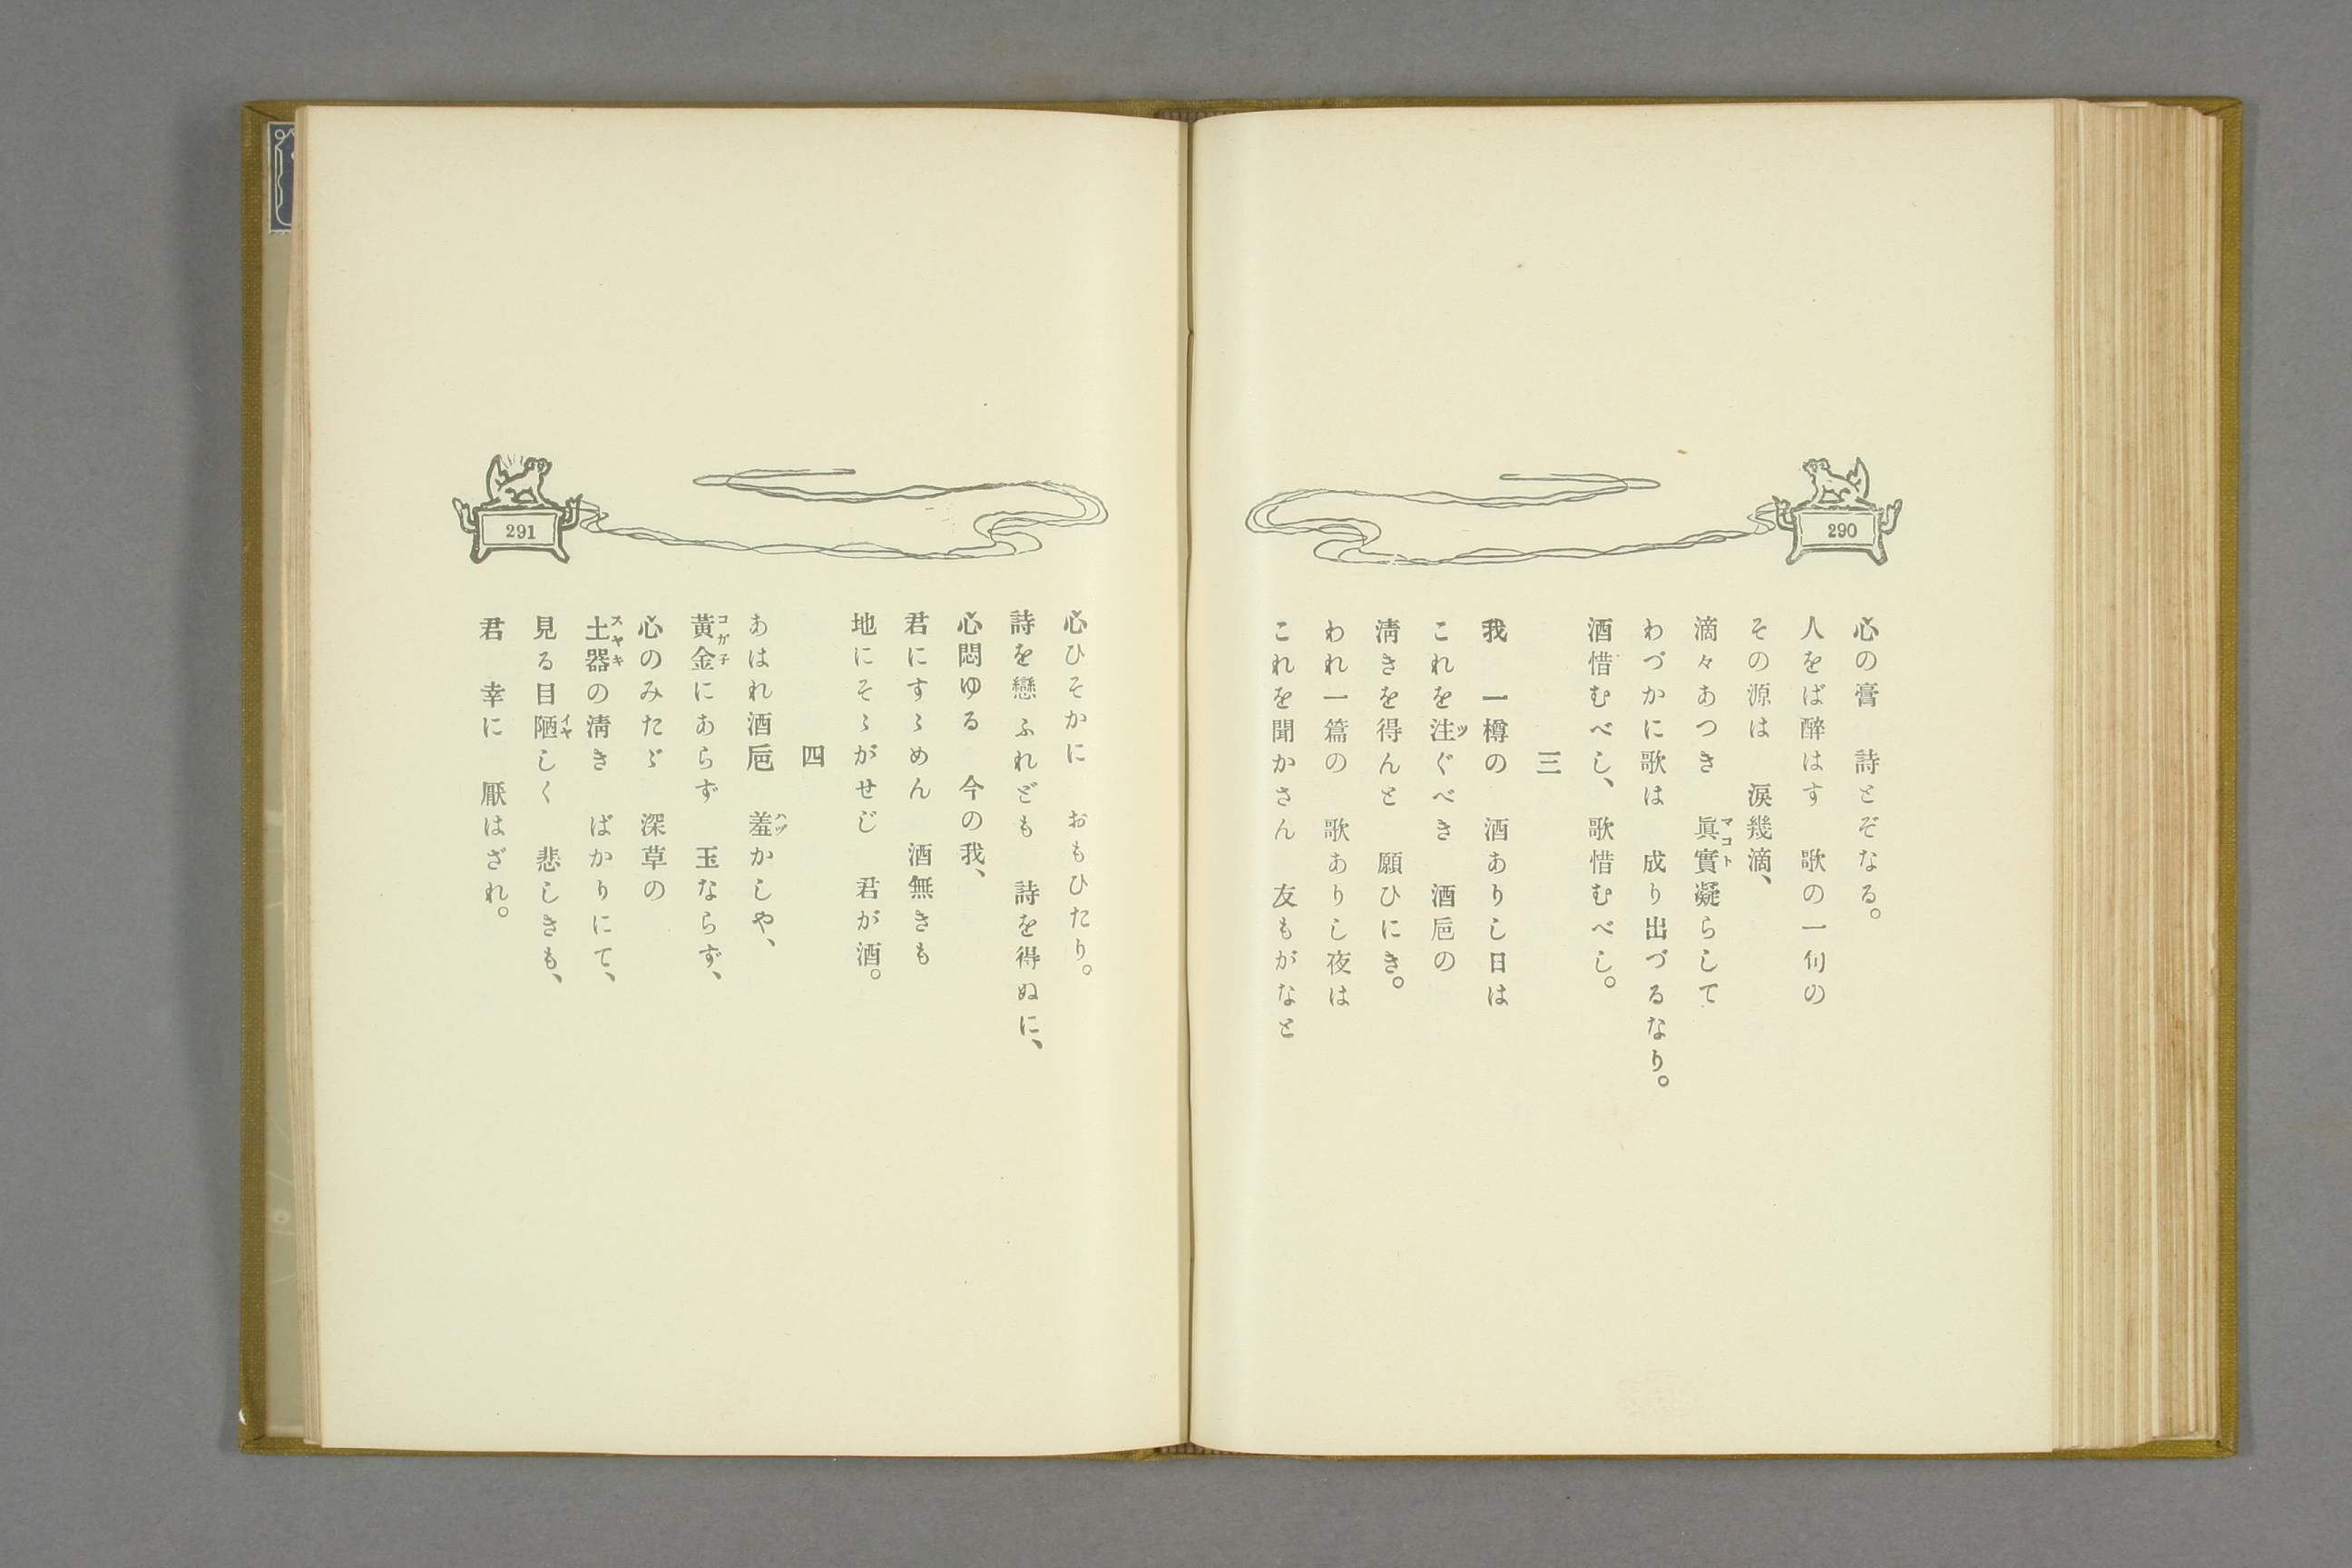 290
心の膏　詩とぞなる。
人をば醉はす　歌の一句の
その源は　涙幾滴、
滴々あつき　眞實凝らして
わづかに歌は　成り出づるなり。
酒惜むべし、歌惜むべし。
三
我　一樽の　酒ありし日は
これを注ぐべき　酒巵の
淸きを得んと　願ひにき。
われ一篇の　歌ありし夜は
これを聞かさん　友もがなと
291
心ひそかに　おもひたり。
詩を戀ふれども　詩を得ぬに、
心悶ゆる　今の我、
君にすゝめん　酒無きも
地にそゝがせじ　君が酒。
四
あはれ酒巵　羞かしや、
黃金にあらず　玉ならず、
心のみたゞ　深草の
土器の淸き　ばかりにて、
見る目陋しく　悲しきも、
君　幸に　厭はざれ。